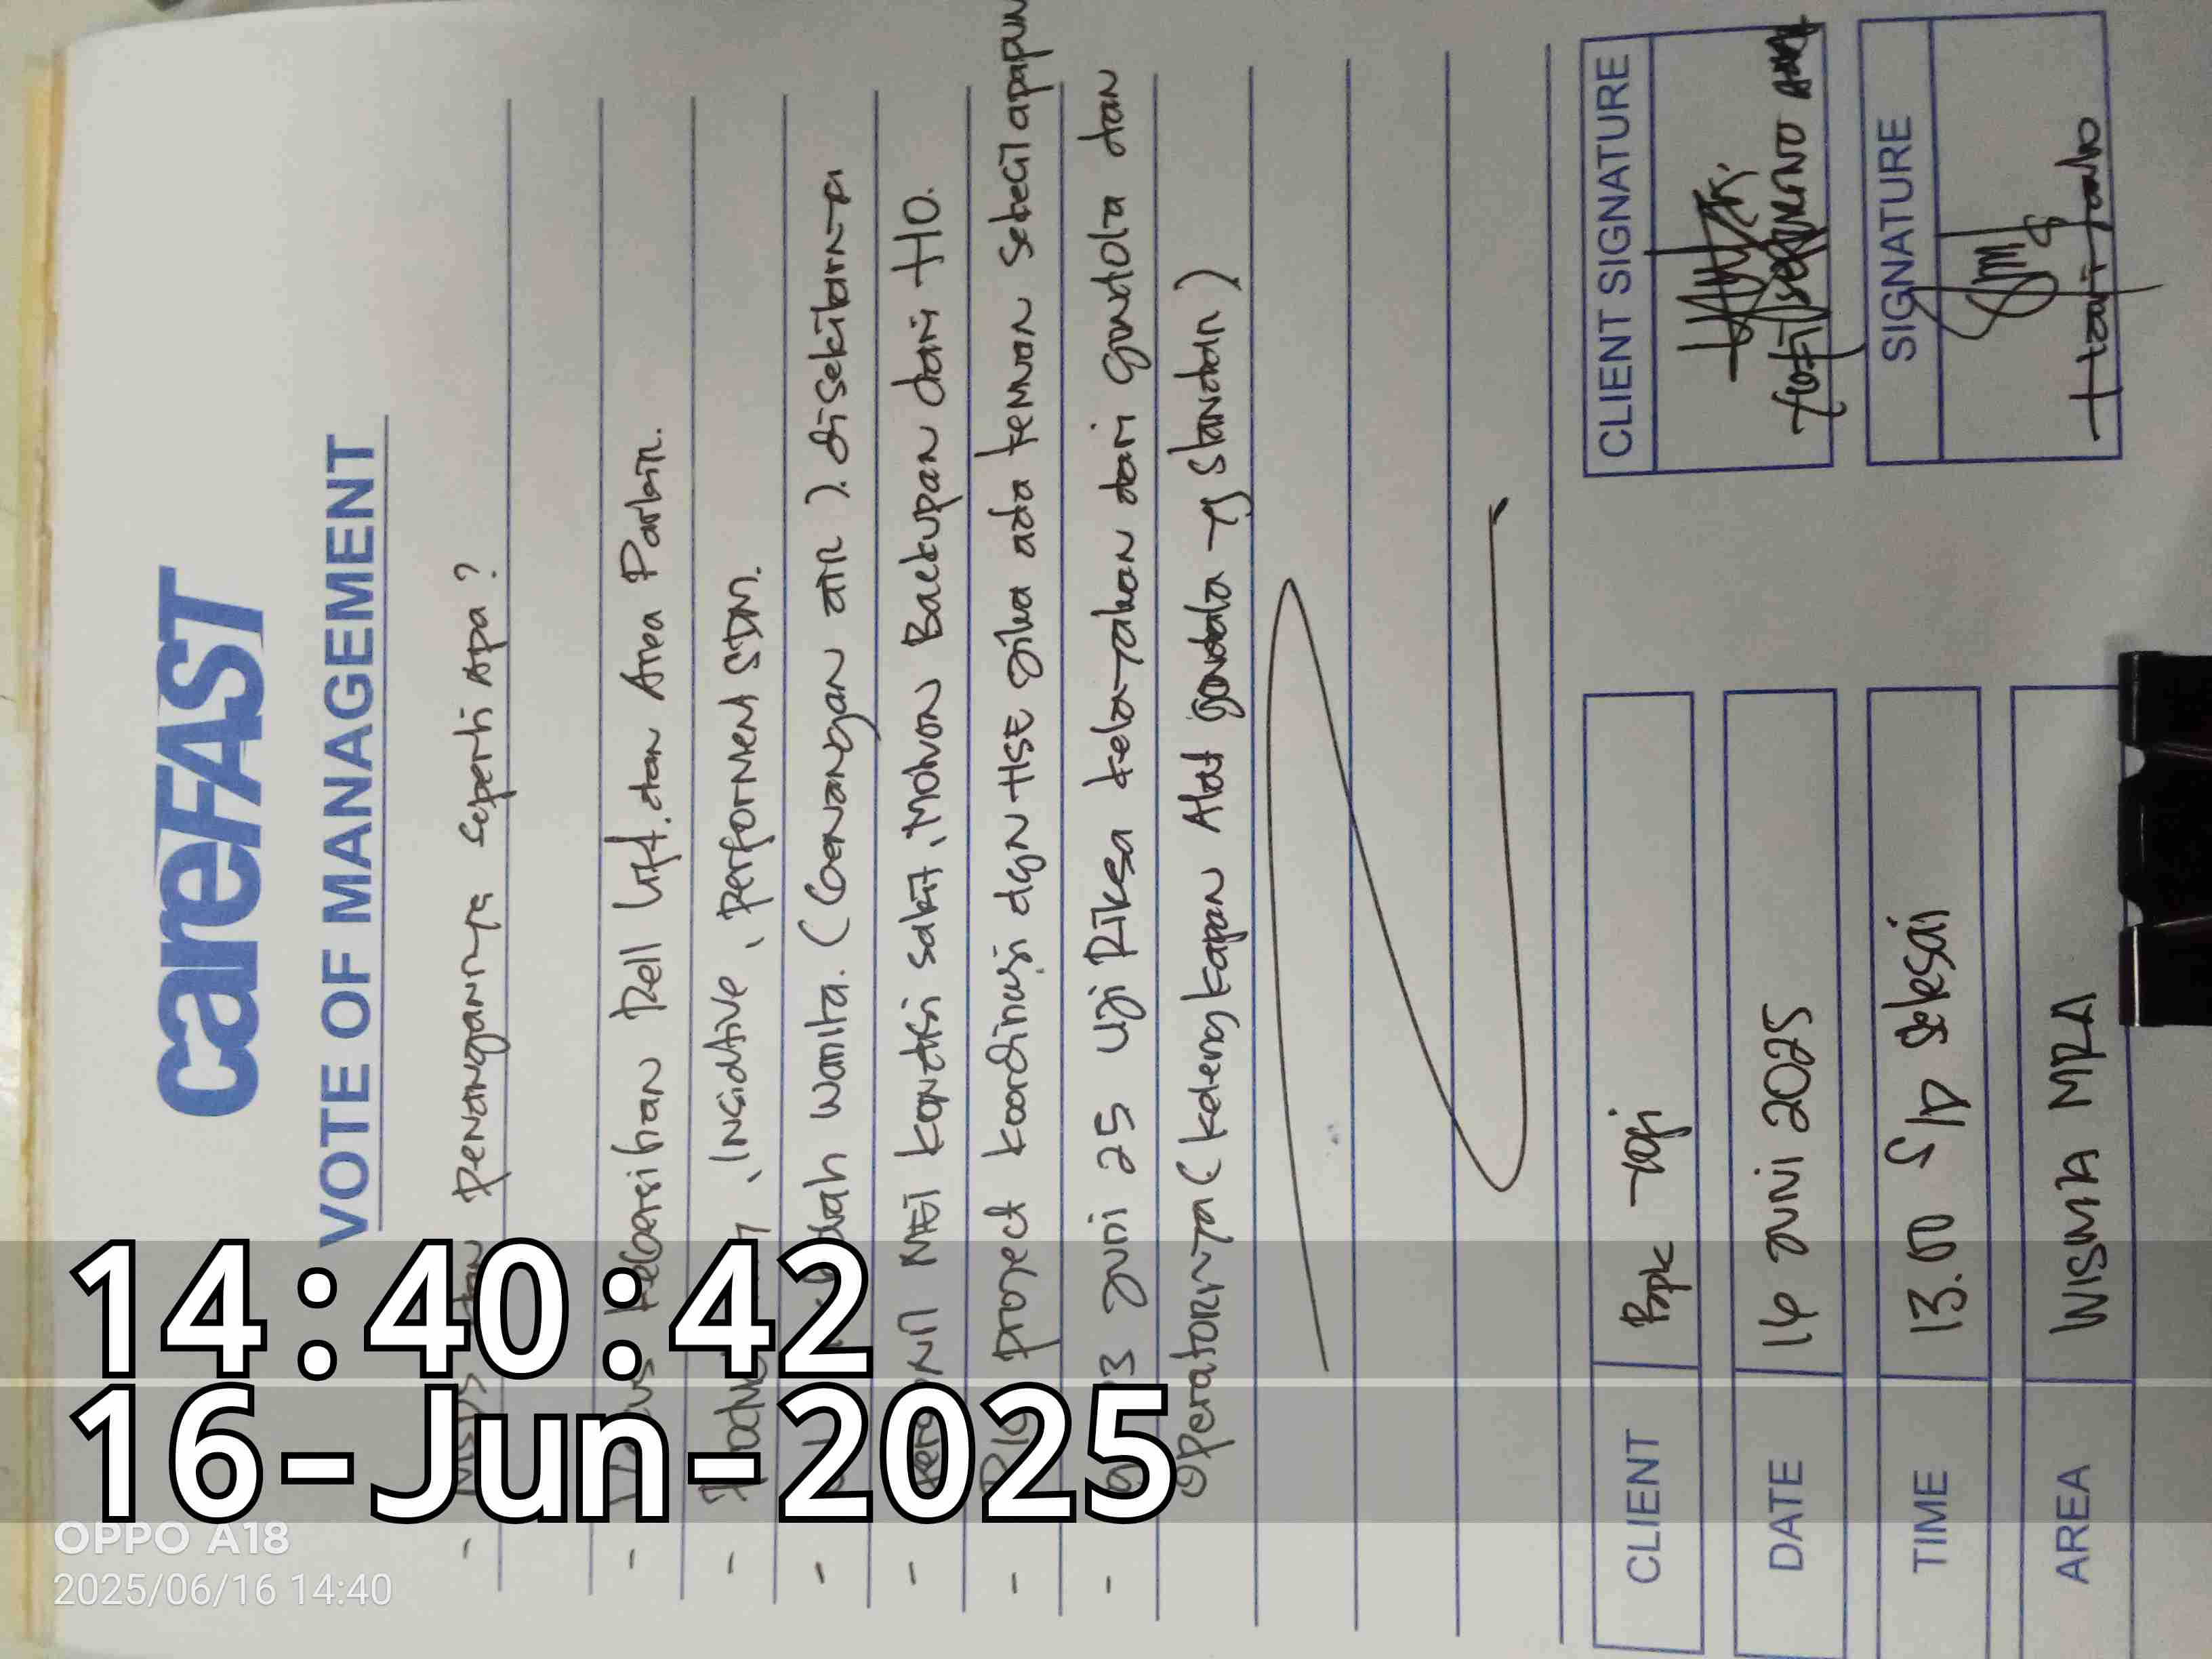 careFAST
VOTE OF MANAGEMENT
- Penanganya seperti Apa ?
- kebersihan Rell lift. dan Area Parkir.
- , Insiative, Performent SDM.
- wanita. (Genangan air). disekitarnya
- kondisi sakit, Mohon Backupan dari HO.
- Project koordinasi dgn HSE jika ada temuan sekecil apapun
- Juni 25 uji Riksa kelayakan dari gondola dan
Operatornya (kelengkapan Alat gondola yg standar)
CLIENT Bpk Yogi
DATE 16 Juni 2025
TIME 13.00 S/D selesai
AREA WISMA MRA
CLIENT SIGNATURE
SIGNATURE
14:40:42
16-Jun-2025
OPPO A18
2025/06/16 14:40